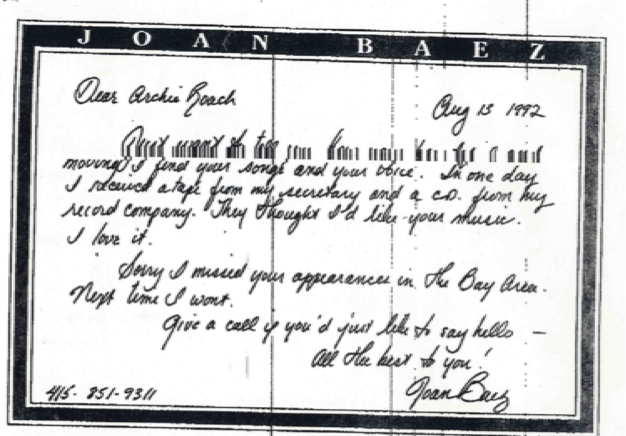 JOAN BAEZ
Dear Archie Roach
Aug 13 1992
Just want to tell you how much
moving I find your songs and your voice. In one day
I received a tape from my secretary and a c.d. from my
record company. They thought I'd like your music.
I love it.
Sorry I missed your appearances in the Bay Area.
Next time I wont.
Give a call if you'd just like to say hello —
All the best to you!
Joan Baez
415-851-9311